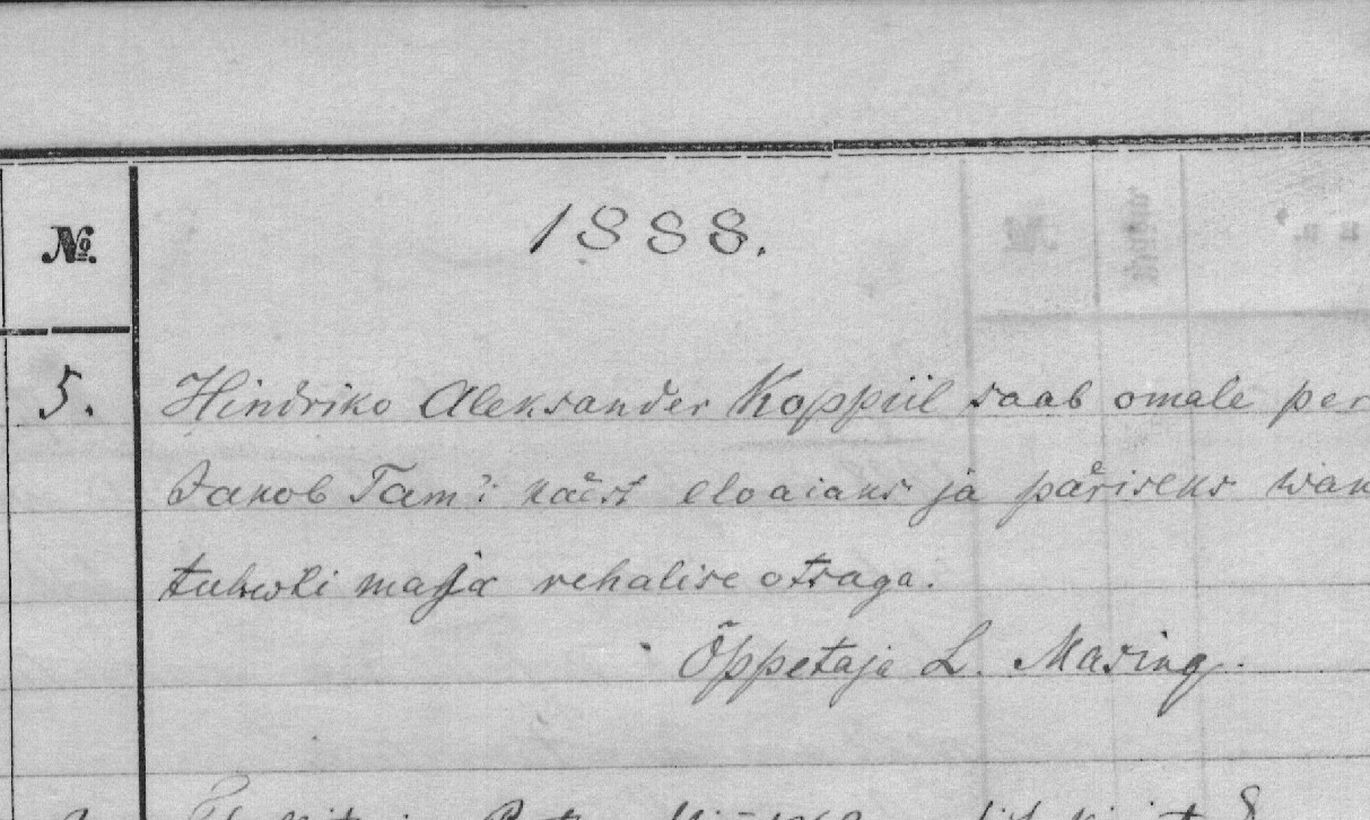 №.
1888.
5. Hindriko Aleksander Koppiil saab omale per
Jakob Tam'i käest eloaiaks ja päriseks wan
tuhwli maja rehalise otsaga.
Õppetaja L. Masing.